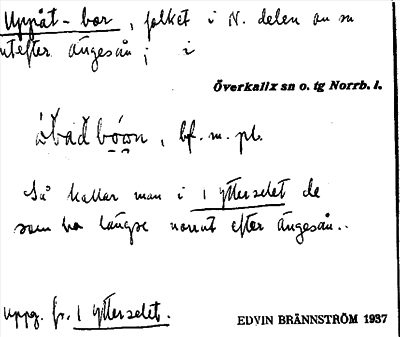 Uppåt-bor, folket i N. delen av sn
utefter Ängesån; i
Överkalix sn o. tg Norrb. l.
bf. m. pl.
Så kallar man i 1 Ytterselet de
som bo längre norrut efter Ängesån..
uppg. fr. 1 Ytterselet.
EDVIN BRÄNNSTRÖM 1937